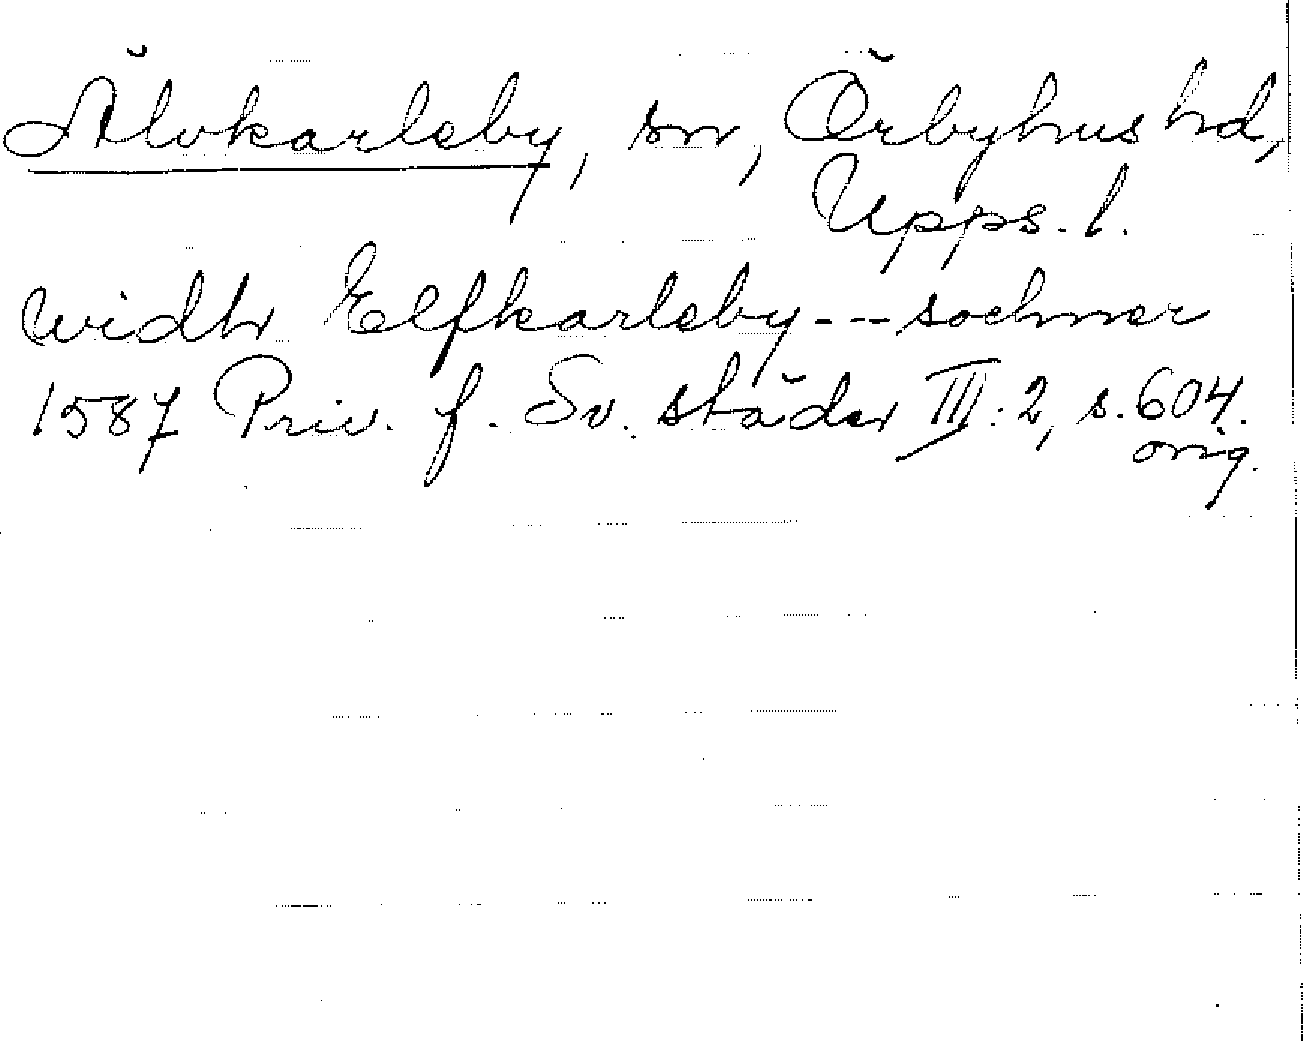 Älvkarleby, sn, Örbyhus hd,
Upps. l.
widh Elfkarleby --- sochner
1587 Priv. f. Sv. städer III: 2, s. 604.
orig.